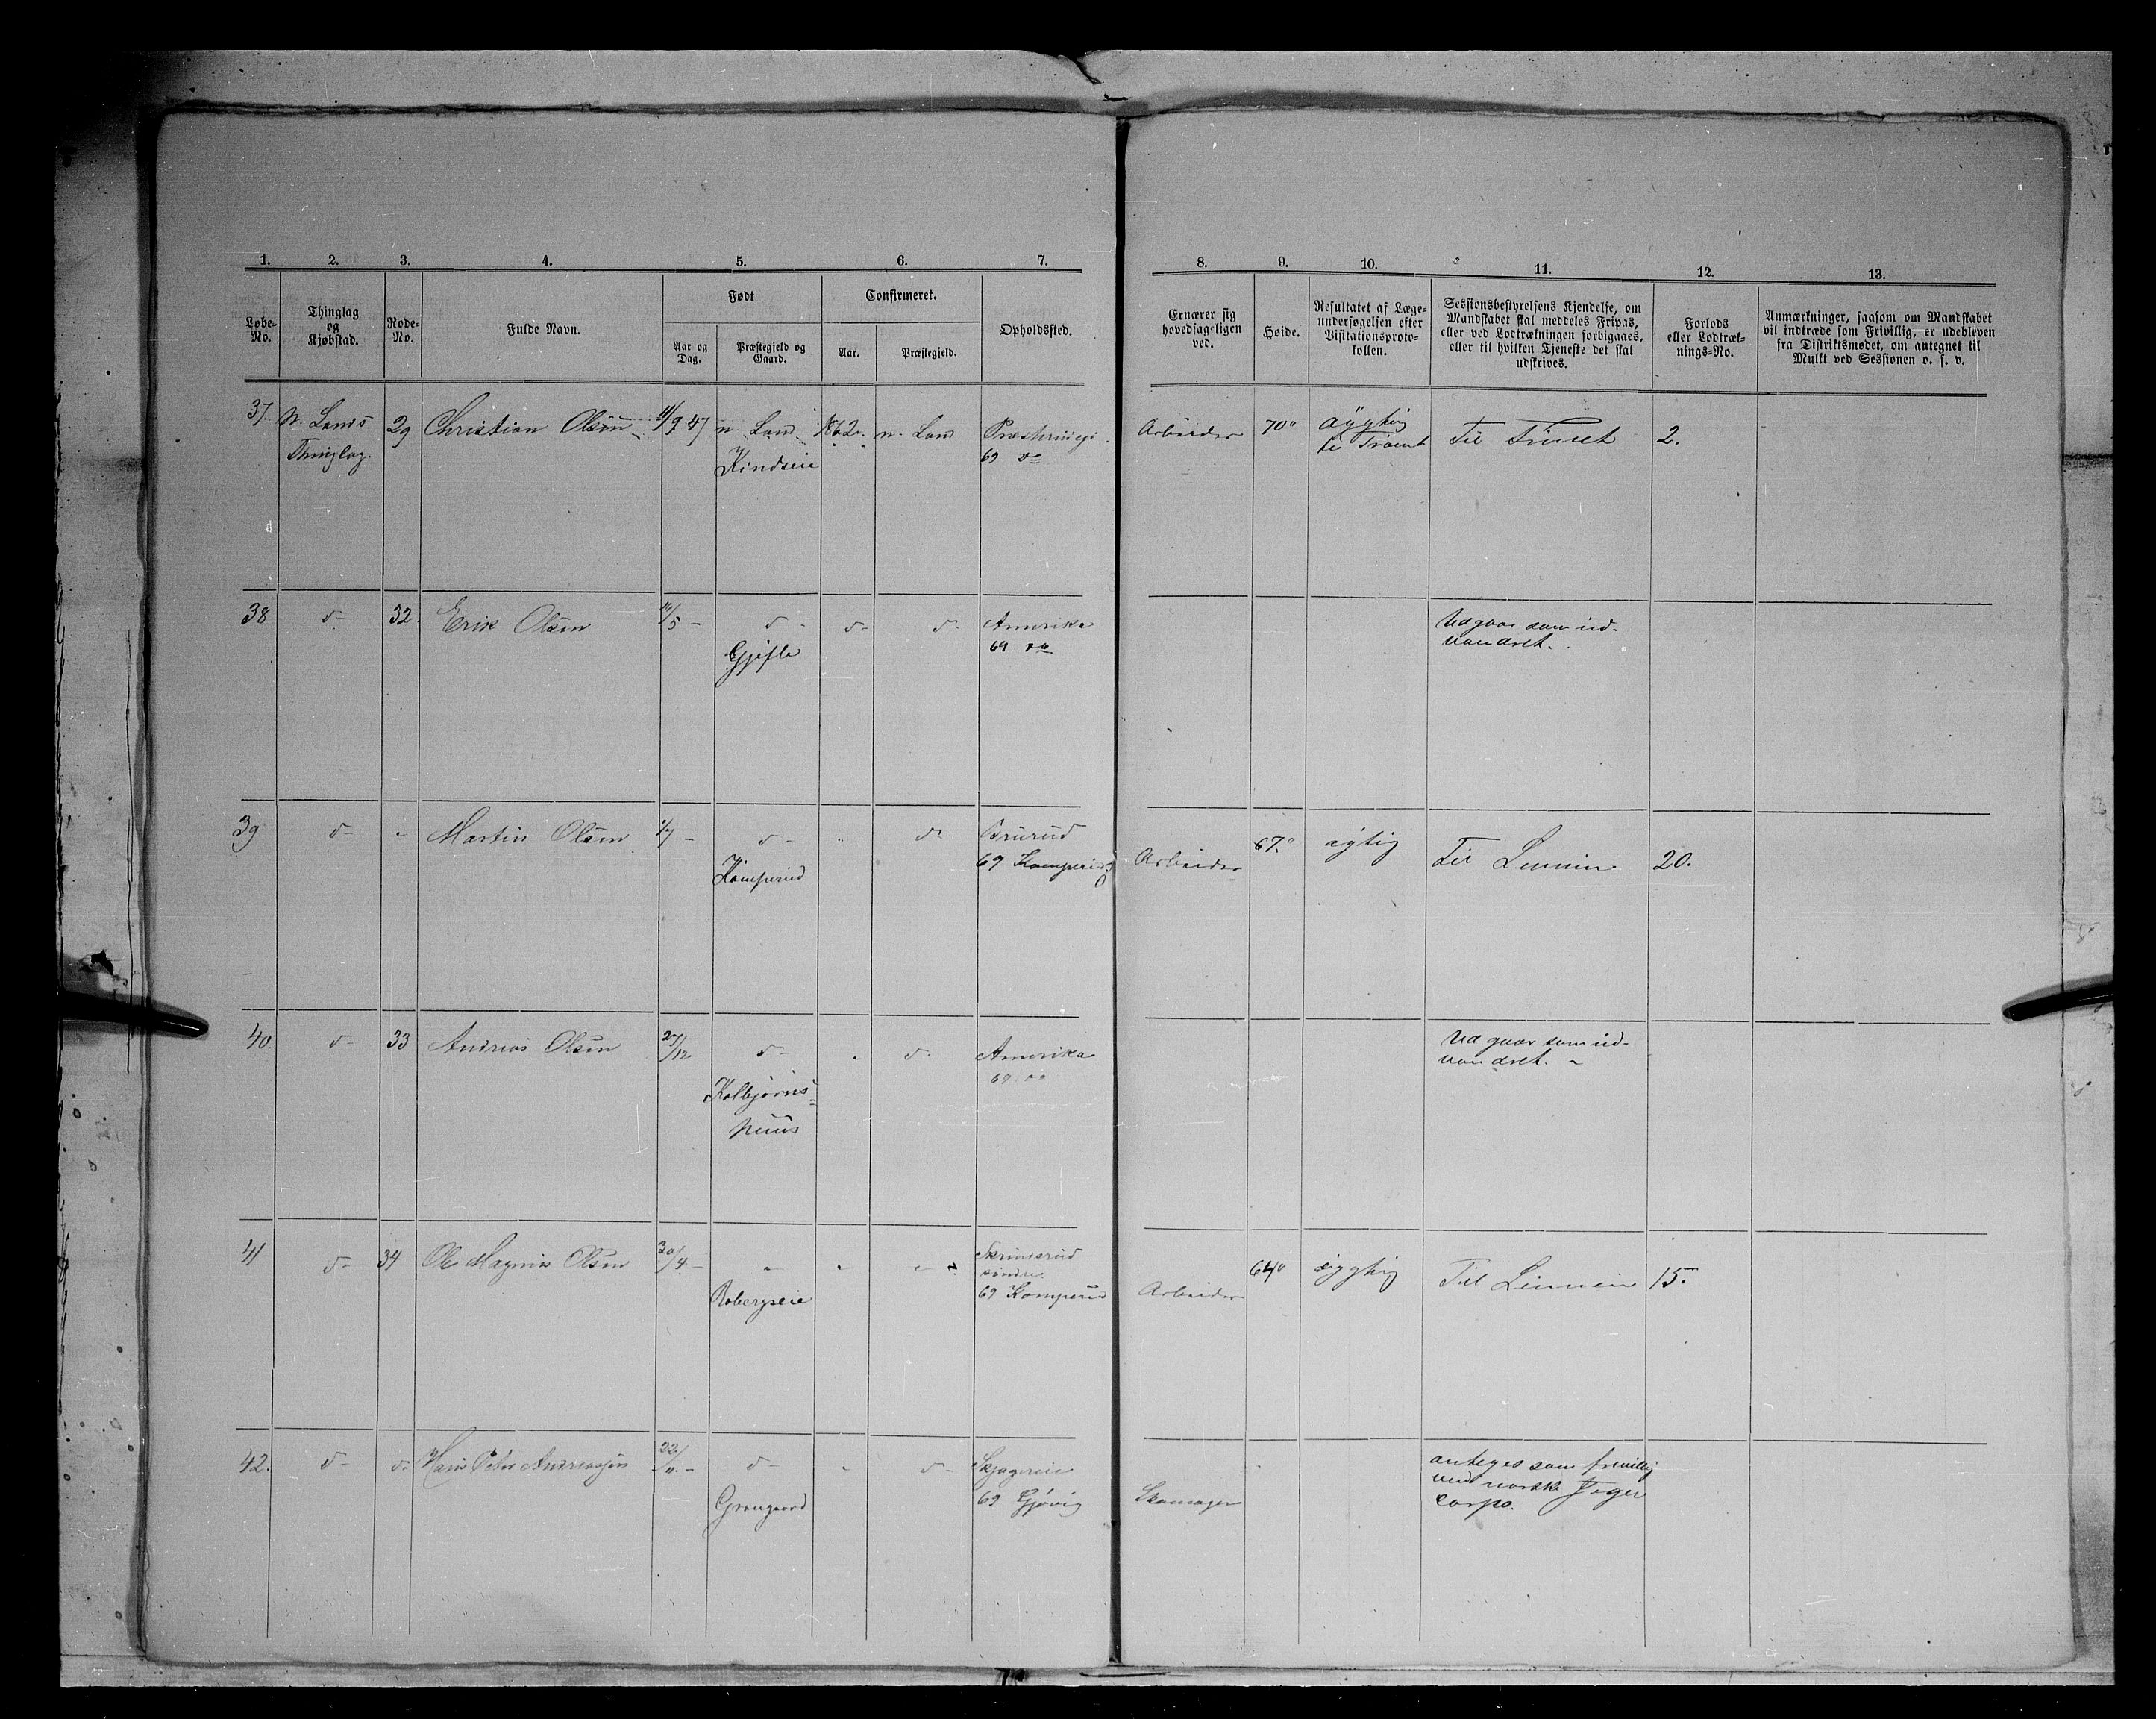 1. 2. 3. 4. 5. 6. 7.
Løbe-No. Thinglag og Kjøbstad. Rode-No. Fulde Navn. Født Confirmeret. Opholdssted.
Aar og Dag. Præstegjeld og Gaard. Aar. Præstegjeld.
37. N. Lands 29 Christian Olsen 11/9 47 n. Land 1862. n. Land
Thinglag. Kindseie 69 do
38 d- 32. Erik Olsen 11/5 - d- d- d- Amerika
Gjefle 69 do
39 d- " Martin Olsen 1/7 - d- " d- Brurud
Kamperud 69 Kamperud
40. d- 33 Andreas Olsen 27/12 d- " d- Amerika
Kolbjørns= 69 do
huus
41 d- 34 Ole Magnus Olsen 30/4 - " " "
søndre.
Robergseie 69 Kamperud
42. d- d- Hans Peter Andreassen 22/11. - d- " d-
Grøngaard 69 Gjøvig
8. 9. 10. 11. 12. 13.
Ernærer sig hovedsageligen ved. Høide. Resultatet af Læge-undersøgelsen efter Visitationsproto-kollen. Sessionsbestyrelsens Kjendelse, om Mandskabet skal meddeles Fripas, eller ved Lodtrækningen forbigaaes, eller til hvilken Tjeneste det skal udskrives. Forlods eller Lodtræk-nings-No. Anmærkninger, saasom om Mandskabet vil indtræde som Frivillig, er udebleven fra Distriktsmødet, om antegnet til Mulkt ved Sessionen o. s. v.
Arbeider 70" dygtig Til Trænet 2.
til Trænet
Udgaar som ud-
vandret.
Arbeider 67." dygtig Til Linien 20.
Udgaar som ud-
vandret. -
Arbeider 64" dygtig Til Linien 15.
Skomager antages som frivillig
ved norske Jæger
corps.